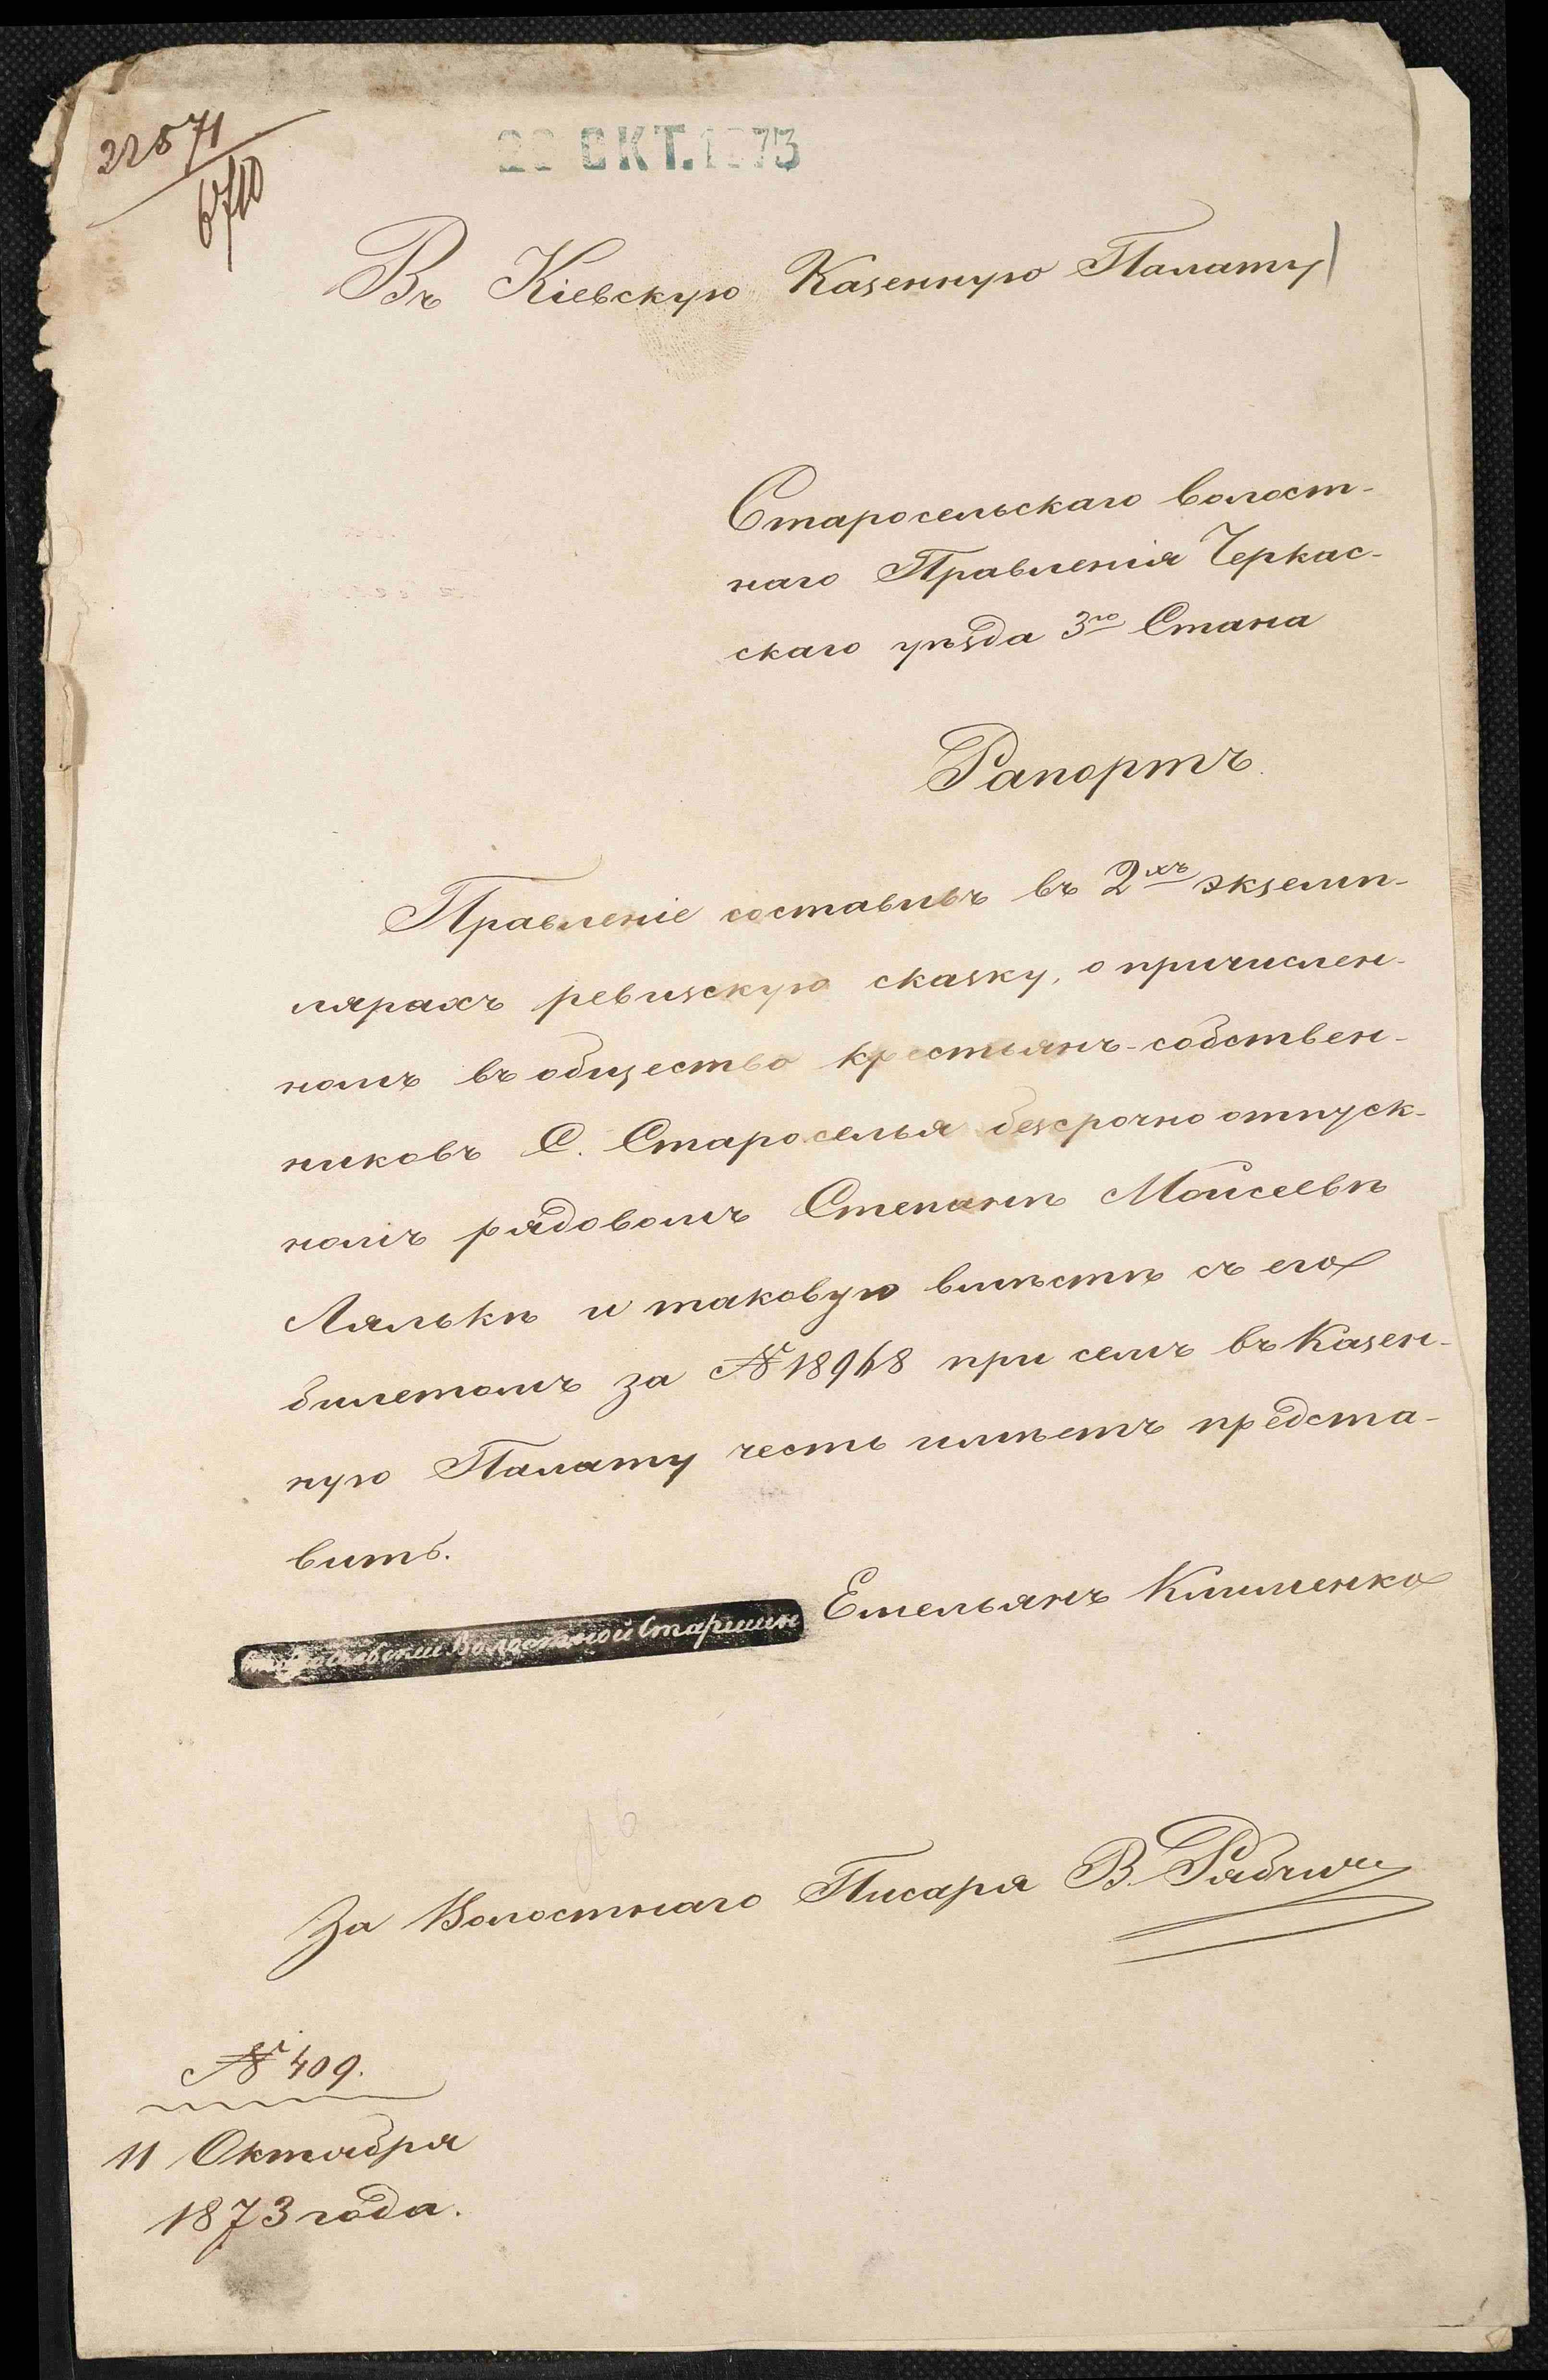 22571
6710
ОКТ.1873
Въ Кіевскую Казенную Палату
Старосельскаго волост-
наго Правленія Черкас-
скаго уѣзда 3го Стана
Рапортъ.
Правленіе составивъ въ 2хъ экземп-
лярахъ ревизскую сказку, о причислен-
номъ въ общество крестьянъ-собствен-
никовъ С. Староселья безсрочно отпуск-
номъ рядовомъ Степанѣ Моисеевѣ
Лялькѣ и таковую вмѣстѣ съ его
билетомъ за № 18968 при семъ въ Казен-
ную Палату честь имѣетъ предста-
вить.
Волостной Старшин Емельянъ Клименко
За Волостнаго Писаря В. Рябчич
№ 409.
11 Октября
1873 года.